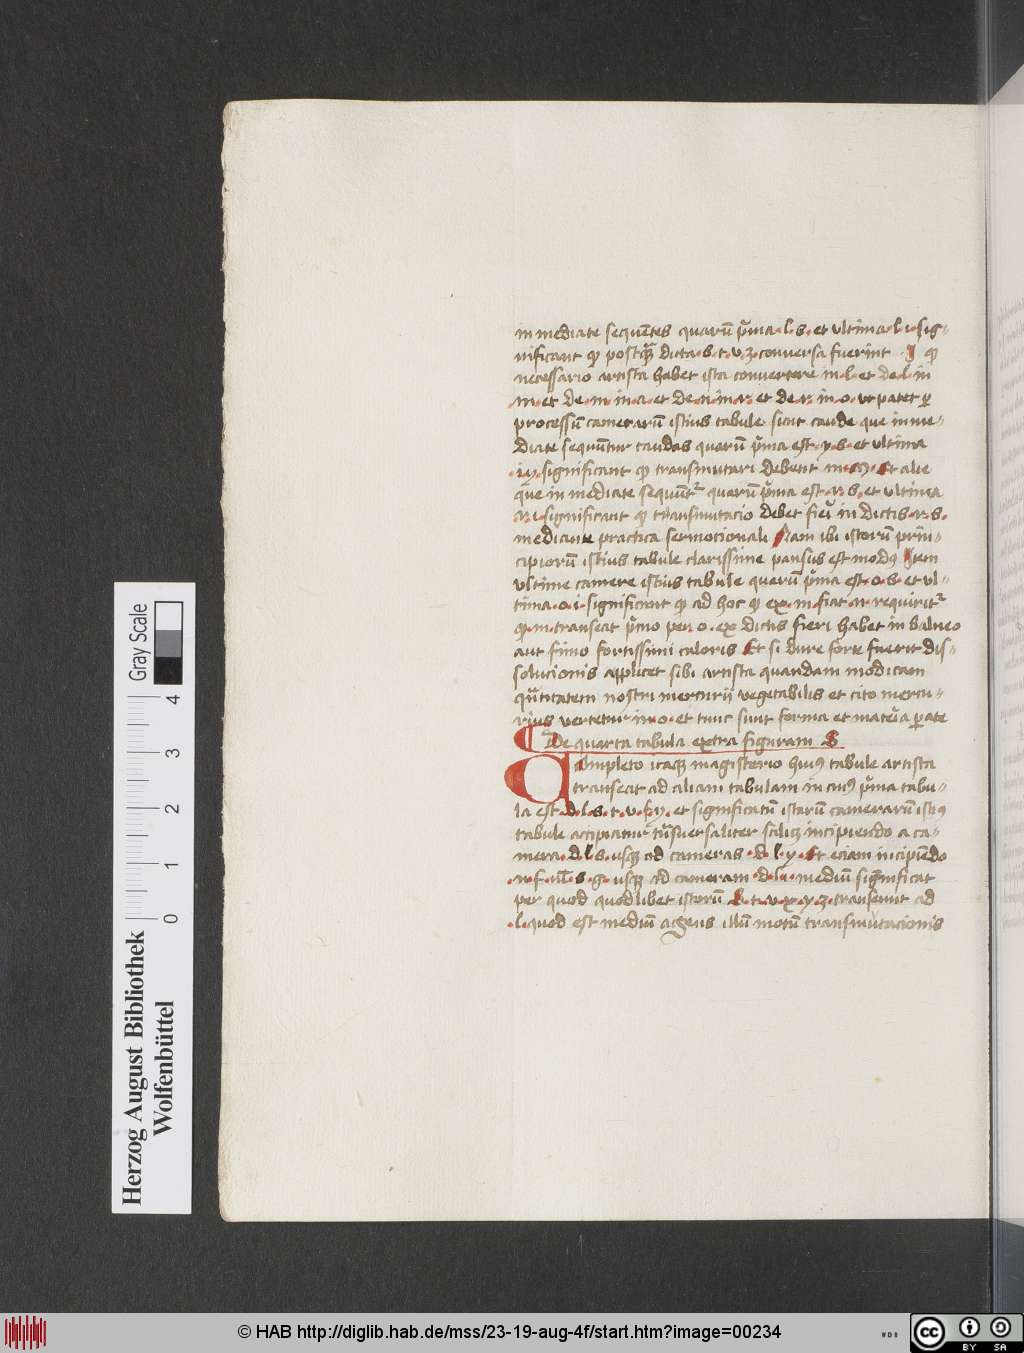 in mediate sequētes quarū p̄ma ·l·s· et ultima ·l·i· sig-
nificant qꝫ postqꝫ dicta ·s·t·v·z· conversa fuerint · qꝫ
necessario artista habet ista convertere in ·l· et de ·l· in
·m· et de ·m· in ·a· et de ·n· in ·r· et de ·r· in ·o· ut patet ꝑ
processū camerarū istius tabule sicut caude que inme-
diate sequūtur caudas quarū p̄ma est ·y·s· et ultima
·i·y· significant qꝫ transmutari debent in Et alie
que in mediate sequūt᷑ quarū p̄ma est ·r·s· et ultima
·r·i· significant qꝫ transmutacio debet fieri in dictis ·r·s·
mediante practica sermocionali Nam ibi istorū prin-
cipiorū istius tabule clarissime pansus est modꝰ Item
ultime camere istius tabule quarū p̄ma est ·o·s· et ul-
tima ·o·i· significant qꝫ ad hoc qꝫ ex ·m· fiat ·r· requirit᷑
qꝫ ·m· transeat p̄mo per ·o· ex dictis fieri habet in balneo
aut fimo fortissimi caloris Et si dure forte fuerit dis-
solucionis applicet sibi artista quandam modicam
quātitatem nostri mercurij vegetabilis et cito mercu-
rius vertetur in ·o· et tunc sunt forma et materia ꝑate
¶ De quarta tabula extra figuram S
Completo itaqꝫ magisterio huiꝰ tabule artista
transeat ad aliam tabulam in cuiꝰ p̄ma tabu-
la est ·d·l·s·t·v· et significatū istarū camerarū istiꝰ
tabule accipiatur trāsversaliter scilicꝫ incipiendo a ca-
mera ·d·l·s· usqꝫ ad cameras ·d·l·y· Et eciam incipiēdo
s·g· usqꝫ ad cameram ·d·l·i· mediū significat
per quod quodlibet istorū ·t·v·x·y·z· transeunt ad
·l· quod est mediū agens illū motū transmutacionis
Gray Scale
0 1 2 3 4
Herzog August Bibliothek
Wolfenbüttel
© HAB http://diglib.hab.de/mss/23-19-aug-4f/start.htm?image=00234
WDB
cc BY SA